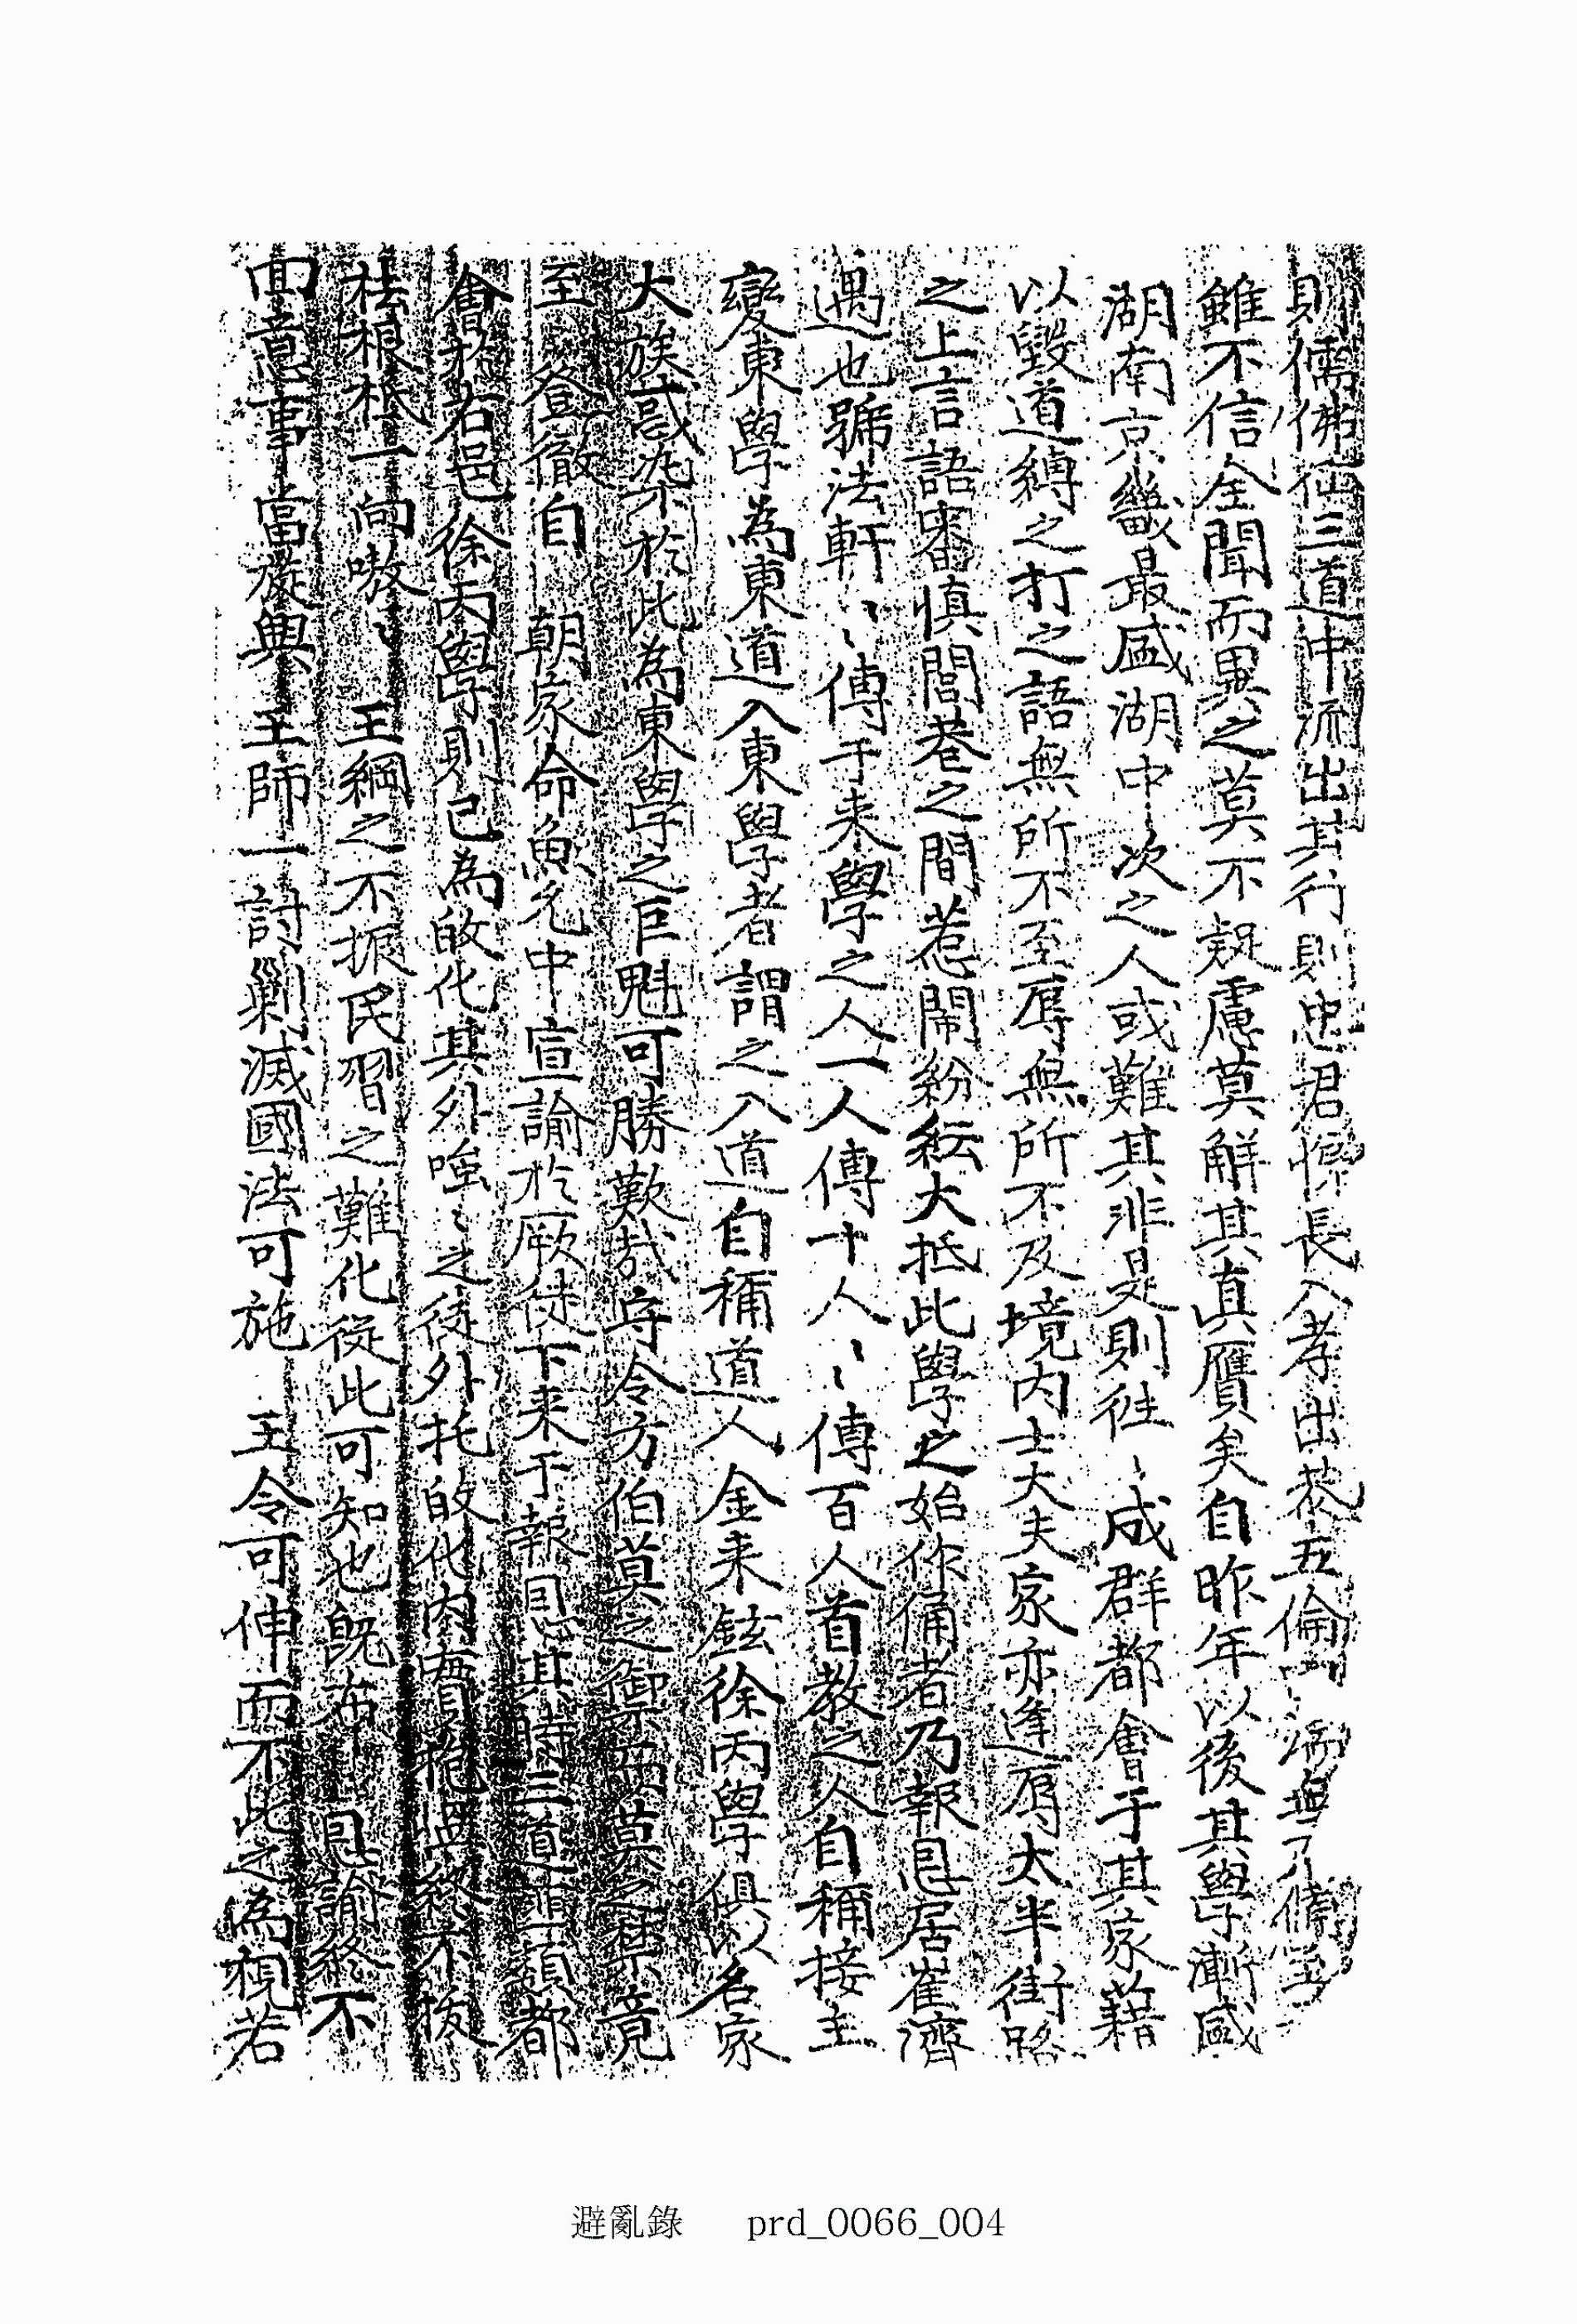 則儒佛仙三道中流出其行則忠君悌長入孝出恭五倫
雖不信全聞而異之莫不疑慮莫解其真贗矣自昨年以後其學漸盛
湖南京畿最盛湖中次之人或難其非是則徃〻成群都會于其家藉
以毀道縛之打之語無所不至辱無所不及境内士大夫家亦逢辱太半街路
之上言語審慎閭巷之間惹鬧紛紜大抵此學之始作俑者乃報恩居崔濟
遇也號法軒〻〻傳于来學之人一人傳十人〻〻傳百人首教之人自稱接主
變東學為東道入東學者謂之入道自稱道人金来鉉徐丙學俱以名家
大族惑於此為東學之巨魁可勝歎哉守令方伯莫之禦而莫之禁竟
至登徹自 朝家命魚允中宣諭於厥徒下来于報恩其時三道匪類都
會於右邑徐丙學則已為皈化其外蚩〻之徒外托皈化内實稔惡終不拔
祛根柢一向嗷〻 王綱之不振民習之難化從此可知也旣布 恩諭終不
面意事當癈與 王師一討剿滅國法可施 王令可伸而不此之為視若
避亂錄 prd_0066_004